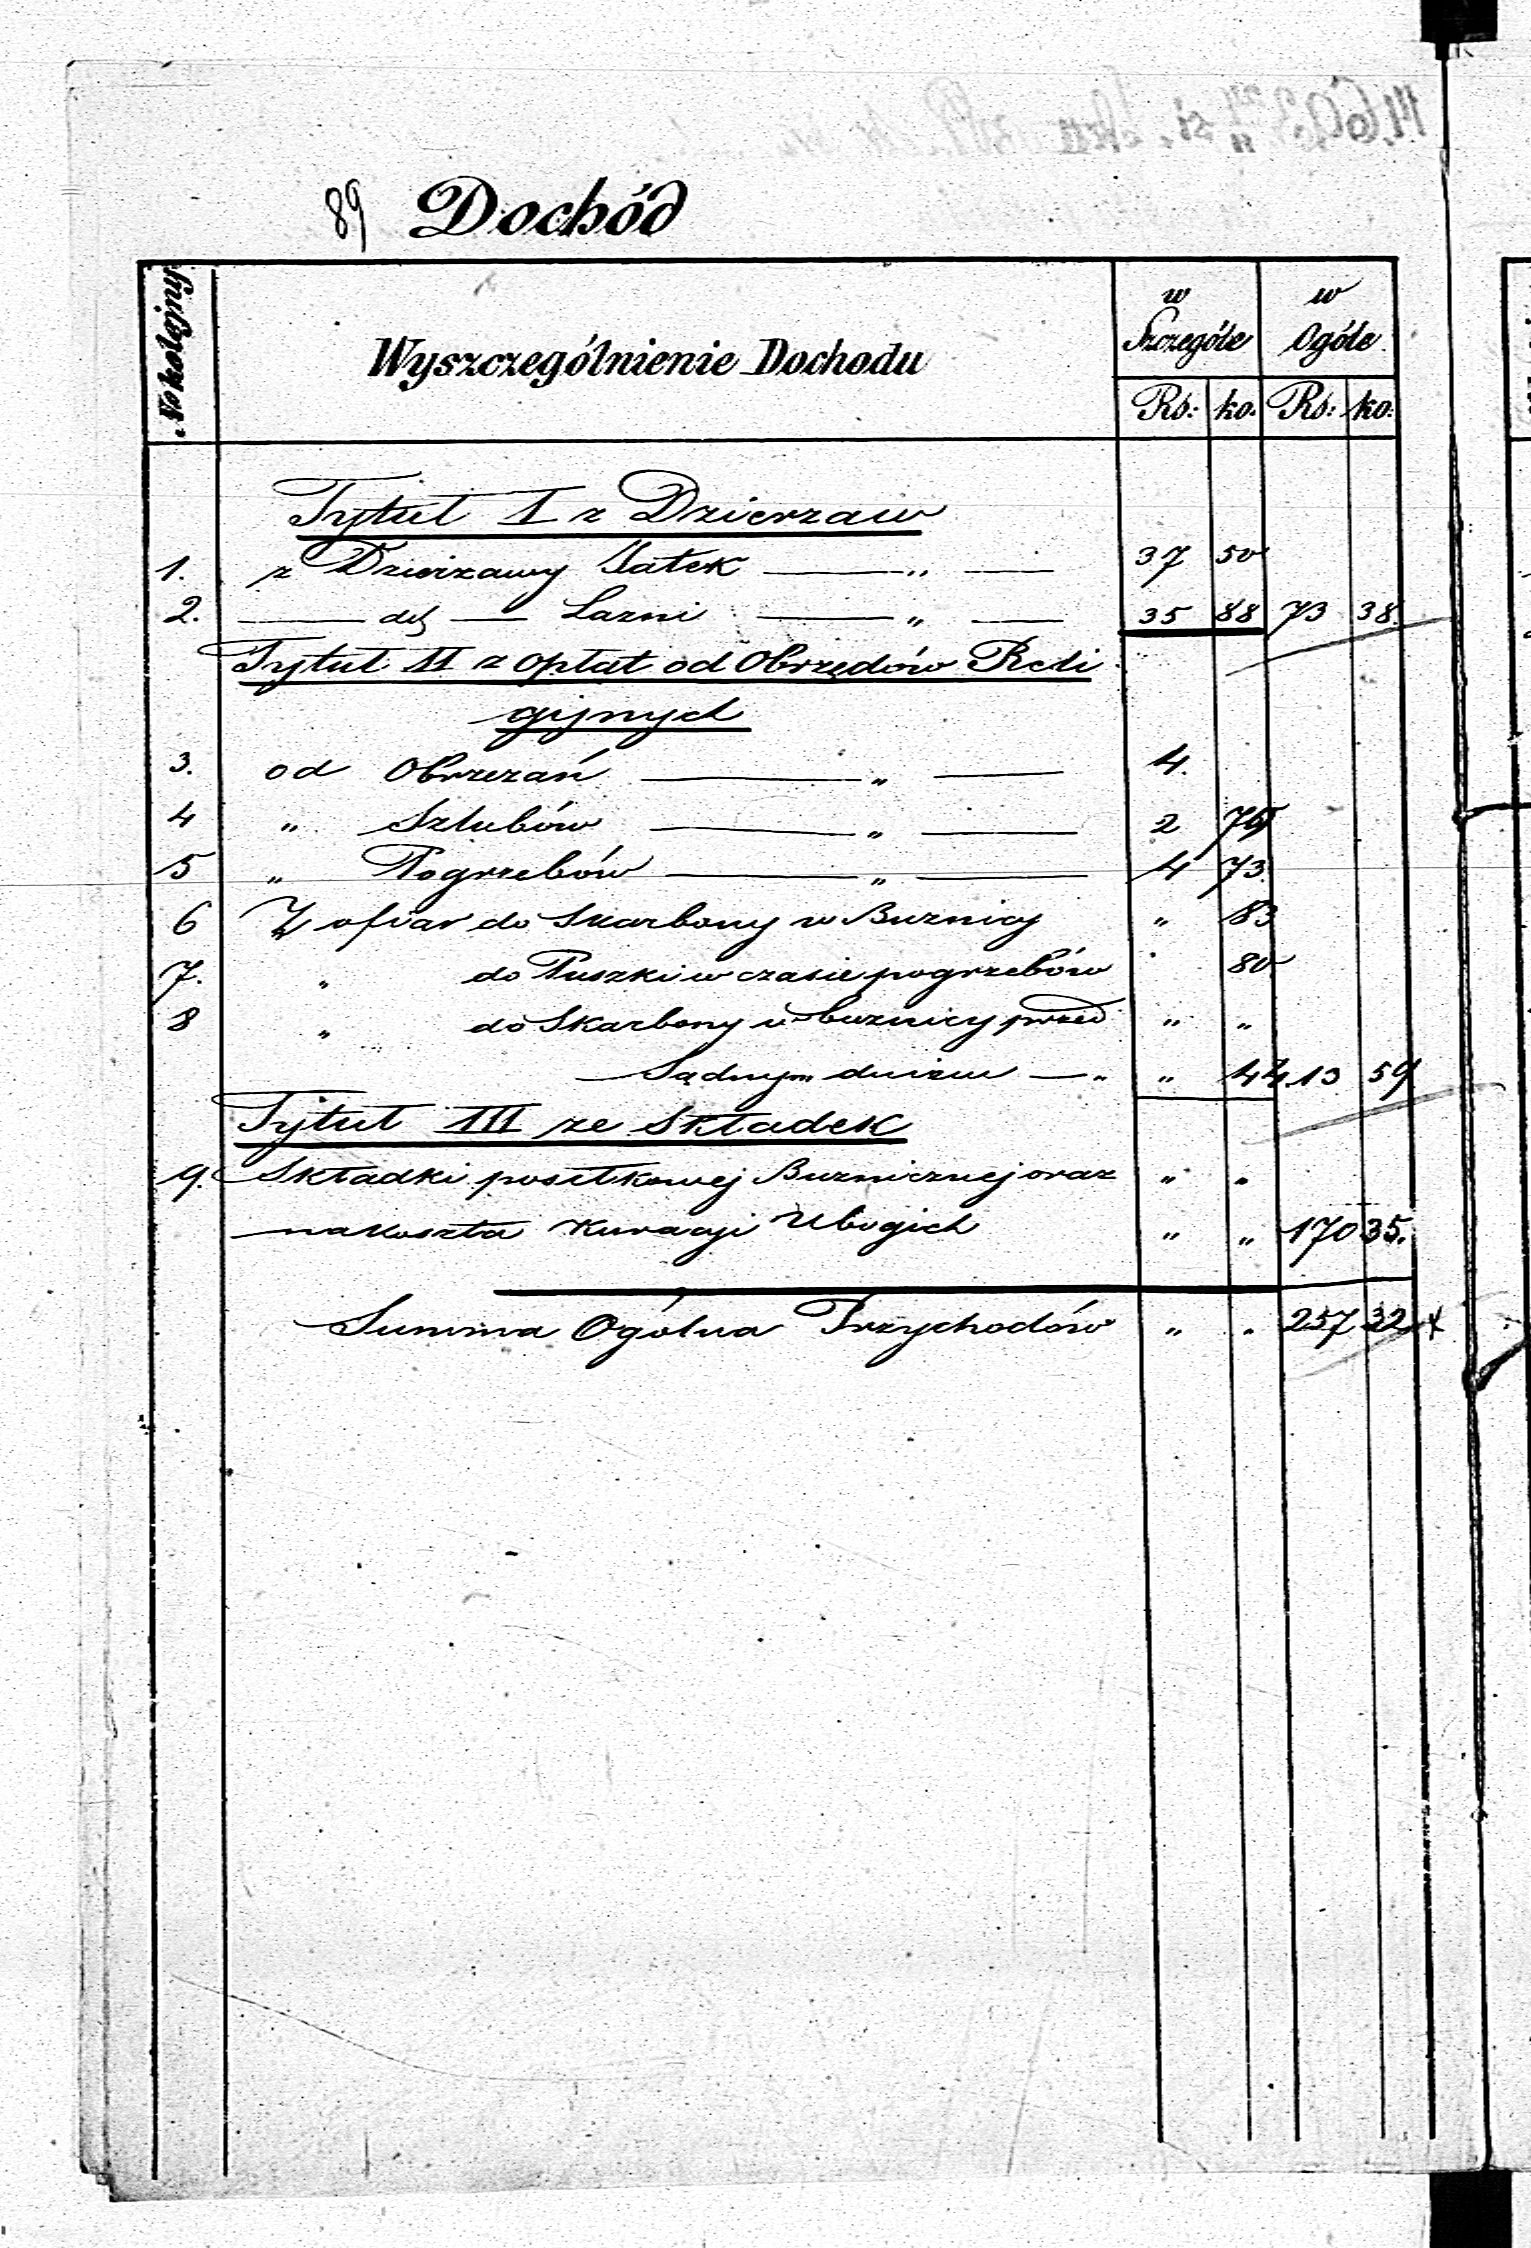 89 Dochód
No kolejny
Wyszczególnienie Dochodu
w Szczególe
w Ogóle
Rb: ko. Rb: ko:
Tytuł I z Dzierzaw
1. z Dzierzawy Jatek — " — 37 50
2. — dt — Lazni — " — 35 88 73 38.
Tytuł II z opłat od Obrzędów Reli
gijnych
3. od Obrzezań — " — 4.
4 " Szlubów — " — 2 79
5 " Pogrzebów — " — 4 73.
6 Z ofiar do Skarbony w Buznicy " 83
7. " do Puszki w czasie pogrzebów " 80
8 " do Skarbony w buznicy przed " "
Sądnym dniem — " " 44 13 59
Tytuł III ze Składek
9. Składki posiłkowej Buznicznej oraz " "
na koszta Kuracji Ubogich " " 170 35.
Summa Ogólna Przychodów " " 257 32